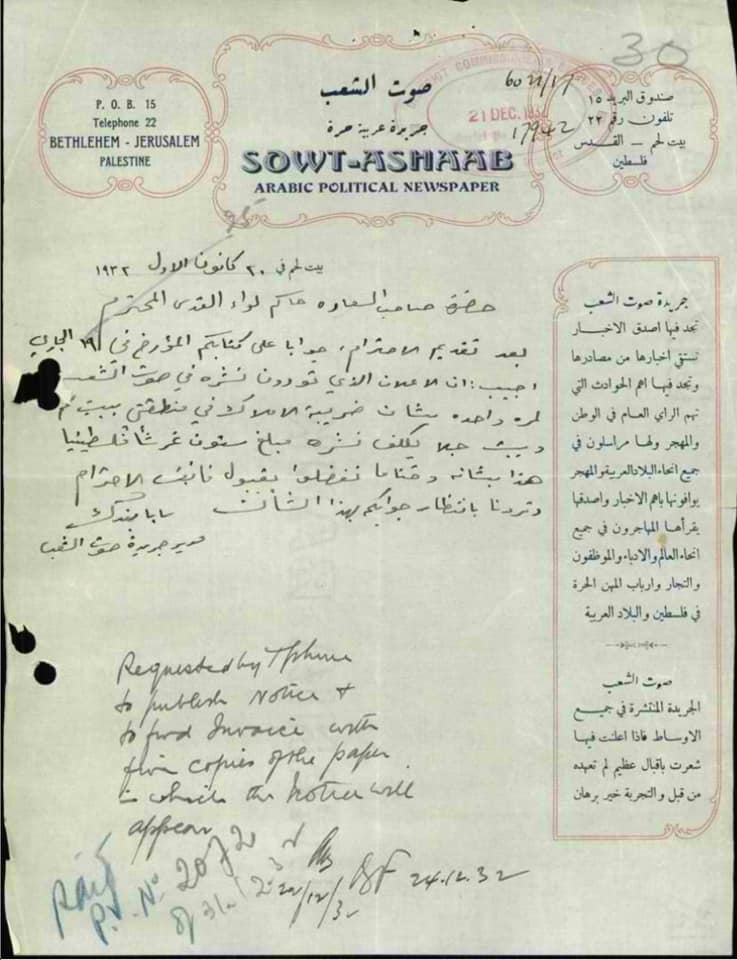 30
صوت الشعب
جريدة عربية حرة
SOWT-ASHAAB
ARABIC POLITICAL NEWSPAPER
P. O. B. 15
Telephone 22
BETHLEHEM - JERUSALEM
PALESTINE
صندوق البريد ١٥
تلفون رقم ٢٢
بيت لحم — القدس
فلسطين
21 DEC. 1932
17942
بيت لحم في ٢٠ كانون الاول ١٩٣٢
حضرة صاحب السعاده حاكم لواء القدس المحترم
بعد تقديم الاحترام، جوابا على كتابكم المؤرخ في ١٩ الجاري
اجيب: ان الاعلان الذي تودون نشره في صوت الشعب
لمره واحده بشان ضريبة الاملاك في منطقتي بيت لحم
وبيت جالا يكلف نشره مبلغ ستون غرشاً فلسطينيا
هذا بشانه وختاما تفضلوا بقبول فائق الاحترام
وتردنا بانتظار جوابكم بهذا الشان
مدير جريدة صوت الشعب
جريدة صوت الشعب
تجد فيها اصدق الاخبار
تستقي اخبارها من مصادرها
وتجد فيها اهم الحوادث التي
تهم الراي العام في الوطن
والمهجر ولها مراسلون في
جميع انحاء البلاد العربية والمهجر
يوافونها باهم الاخبار واصدقها
يقرأها المهاجرون في جميع
انحاء العالم والادباء والموظفون
والتجار وارباب المهن الحرة
في فلسطين والبلاد العربية
صوت الشعب
الجريدة المنتشرة في جميع
الاوساط فاذا اعلنت فيها
شعرت باقبال عظيم لم تعهده
من قبل والتجربة خير برهان
Requested by Tphone
to publish Notice &
to fwd Invoice with
copies of the paper
in which the Notice will
appear
24.12.32
Paid
P.V. No 20720